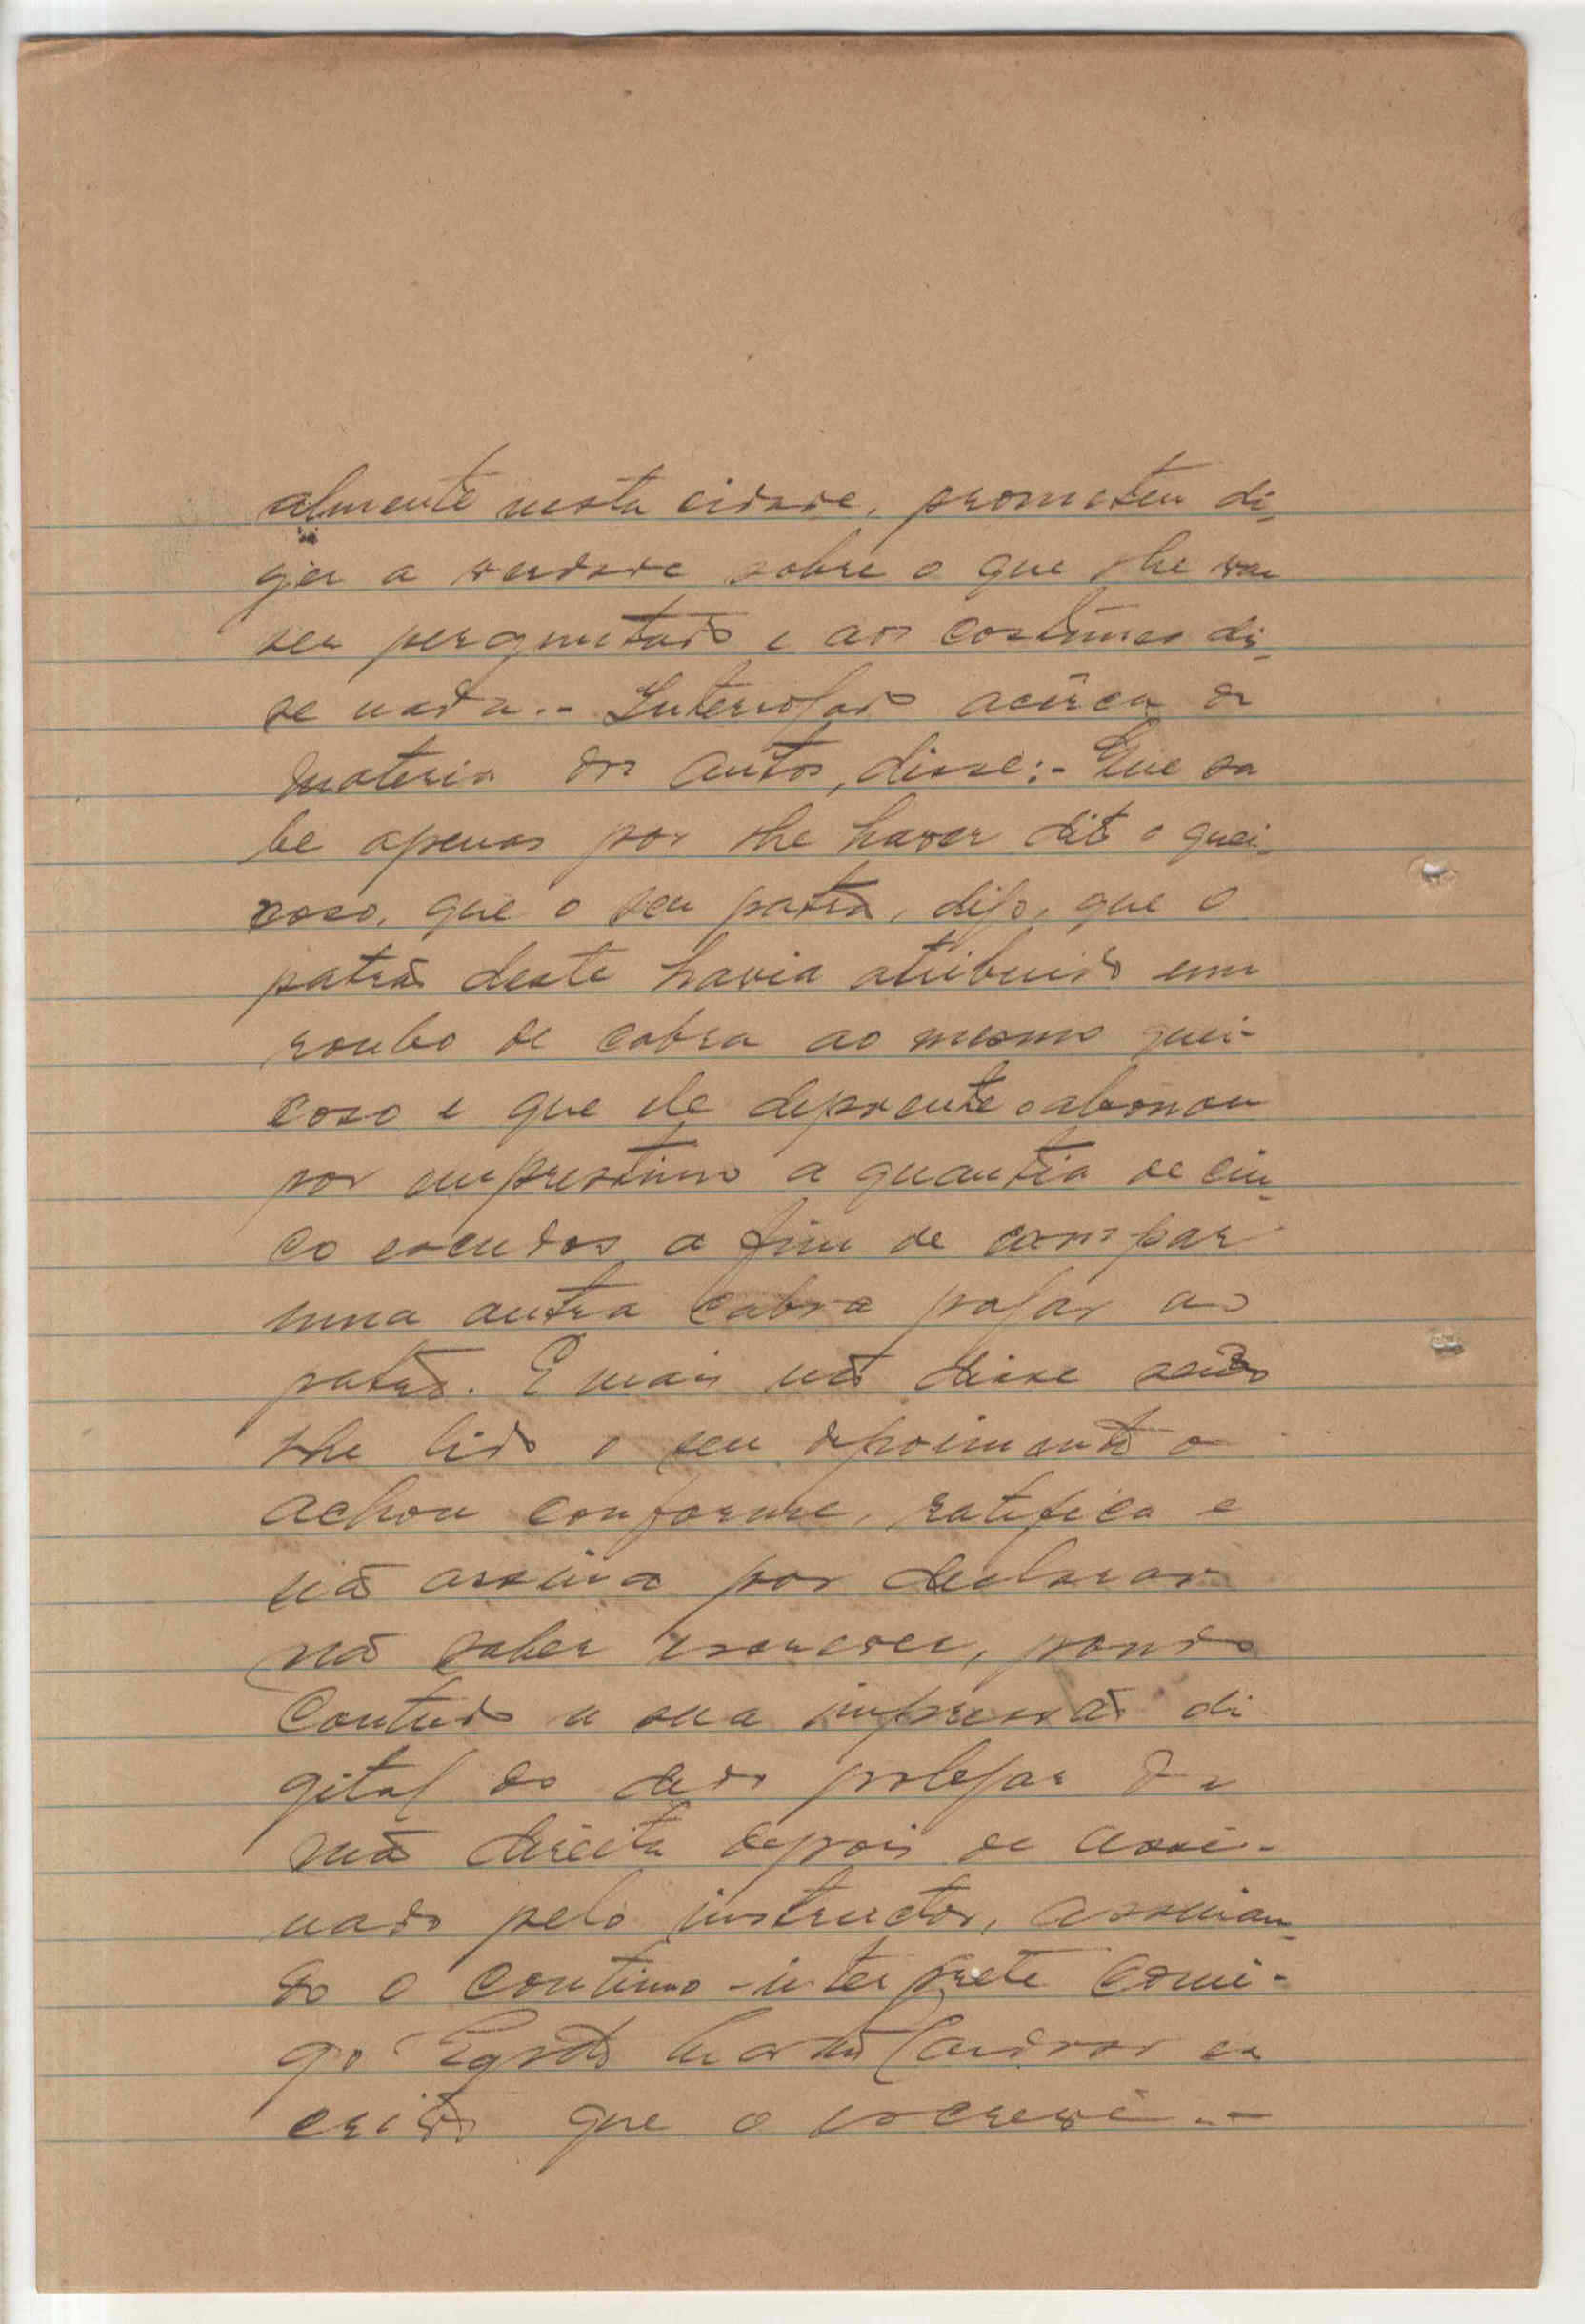 almente nesta cidade, prometeu di-
zer a verdade sobre o que lhe vai
ser perguntado e aos costumes di-
se nada.- Interrogado acêrca da
materia dos autos, disse:- Que sa
be apenas por lhe haver dito o quei-
xoso, que o seu patrão, digo, que o
patrão deste havia atribuido um
roubo de cabra ao mesmo quei-
xoso e que ele depoente o abonou
por emprestimo a quantia de cin-
co escudos a fim de compar
uma outra cabra pagar ao
patrão. E mais não disse sendo
lhe lido o seu depoimento o
achou conforme, ratifica e
não assina por declarar
não saber escrever, pondo
contudo a sua impressão di
gital do dedo polegar da
mão direita depois de assi-
nado pelo instructor, assinan-
do o continuo-interprete comi-
go que o escreví.-